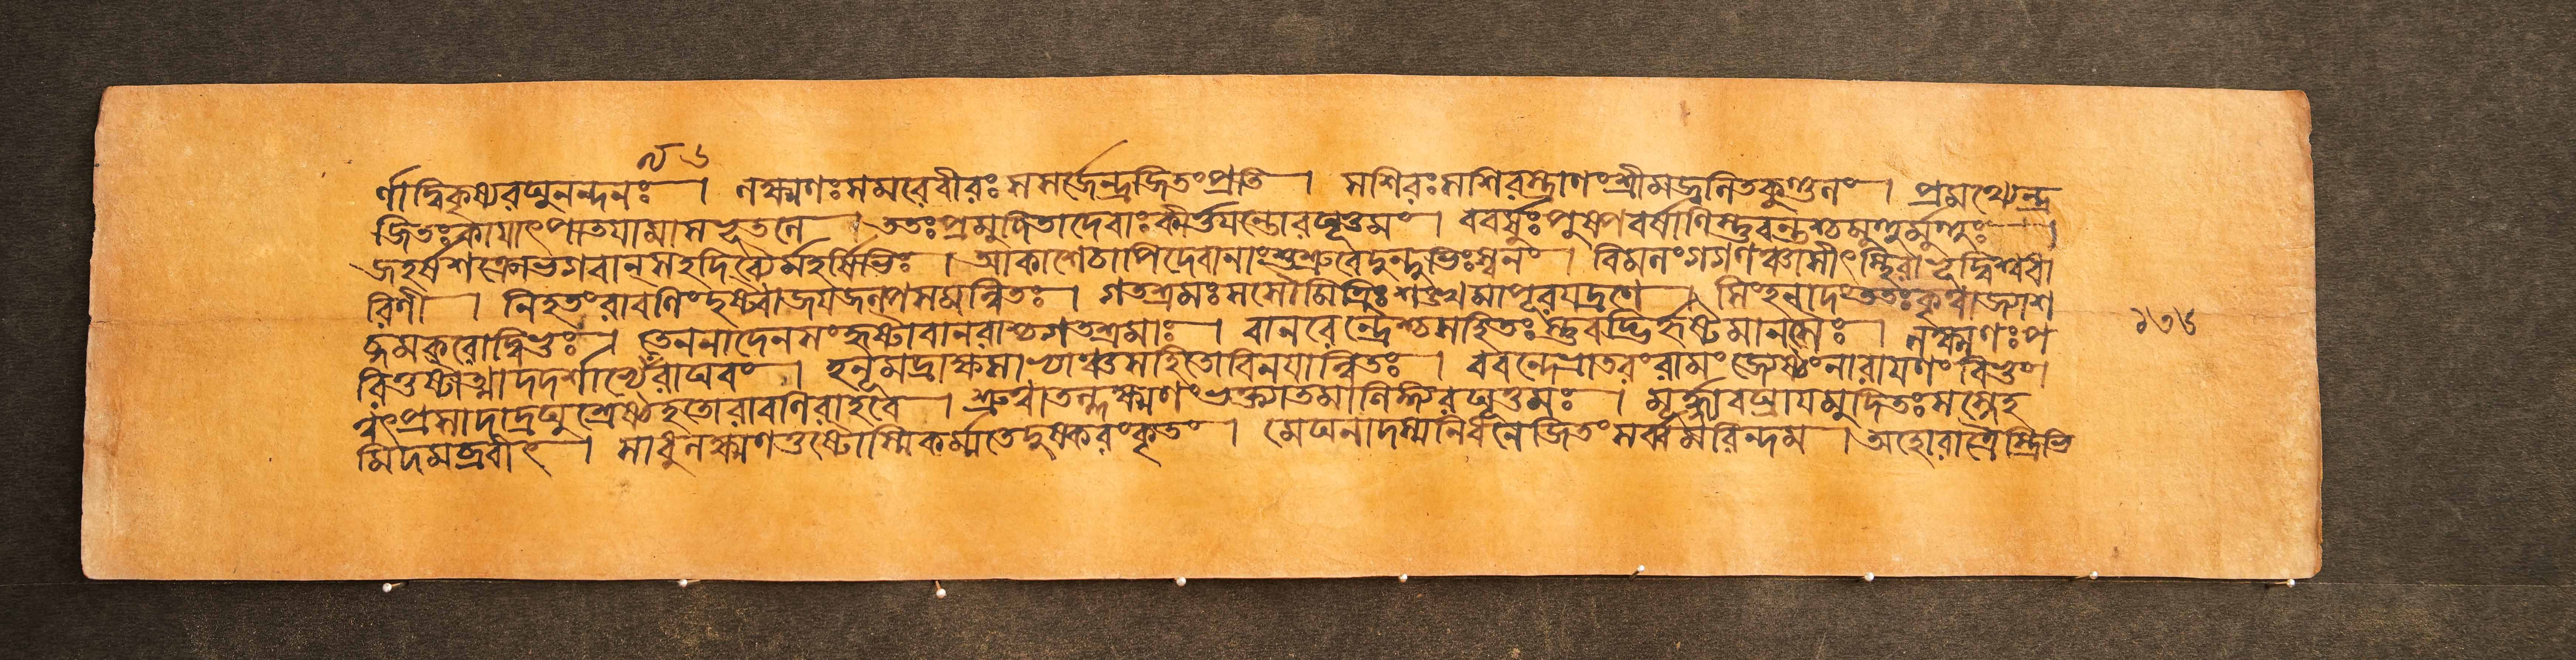 র্ণাদ্বিকৃষ্যরঘুনন্দনঃ । লক্ষ্মণঃসমরেবীরঃসসর্জেন্দ্রজিতংপ্রতি । সশিরঃসশিরস্ত্রাণংশ্রীমজ্জ্বলিতকুণ্ডলং । প্রমথ্যেন্দ্র
জিতঃকায়াৎপাতয়ামাসভূতলে । ততঃপ্রমুদিতাদেবাঃকীর্ত্তয়ন্তোরঘূত্তমং । ববর্ষুঃপুষ্পবর্ষাণিস্তুবন্তশ্চমুহুর্মুহুঃ ।
জহর্ষশক্রোভগবান্সহদিব্যৈর্মহর্ষিভিঃ । আকাশেঽপিদেবানাংশুশ্রুবেদুন্দুভিঃস্বনং । বিমলংগগণঞ্চাসীৎস্থিরাভূদ্বিশ্বধা
রিণী । নিহতংরাবণিংদৃষ্ট্বাজয়জল্পসমন্বিতঃ । গতশ্রমঃসসৌমিত্রিঃশঙ্খমাপূরয়দ্রণে । সিংহনাদংততঃকৃত্বাজ্যাশ
ব্দমকরোদ্বিভুঃ । তেননাদেনসংহৃষ্টাবানরাশ্চগতশ্রমাঃ । বানরেন্দ্রৈশ্চসহিতঃস্তুবদ্ভির্হৃষ্টমানসৈঃ । লক্ষ্মণঃপ
রিতুষ্টাত্মাদদর্শাভ্যেত্যরাঘবং । হনূমদ্রাক্ষসাভ্যাঞ্চসহিতোবিনয়ান্বিতঃ । ববন্দেভ্রাতরংরামংজ্যেষ্ঠংনারায়ণংবিভুং ।
ত্বৎপ্রসাদাদ্রঘুশ্রেষ্ঠহতোরাবণিরাহবে । শ্রুত্বাতল্লক্ষ্মণংভক্ত্যাতমালিঙ্গ্যরঘূত্তমঃ । মূর্দ্ধ্ন্যবঘ্রায়মুদিতঃসস্নেহ
মিদমব্রবীৎ । সাধুলক্ষ্মণতুষ্টোস্মিকর্ম্মতেদুষ্করংকৃতং । মেঘনাদস্যনিধনেজিতংসর্ব্বমরিন্দম । অহোরাত্রৈস্ত্রিভি
১৭৬